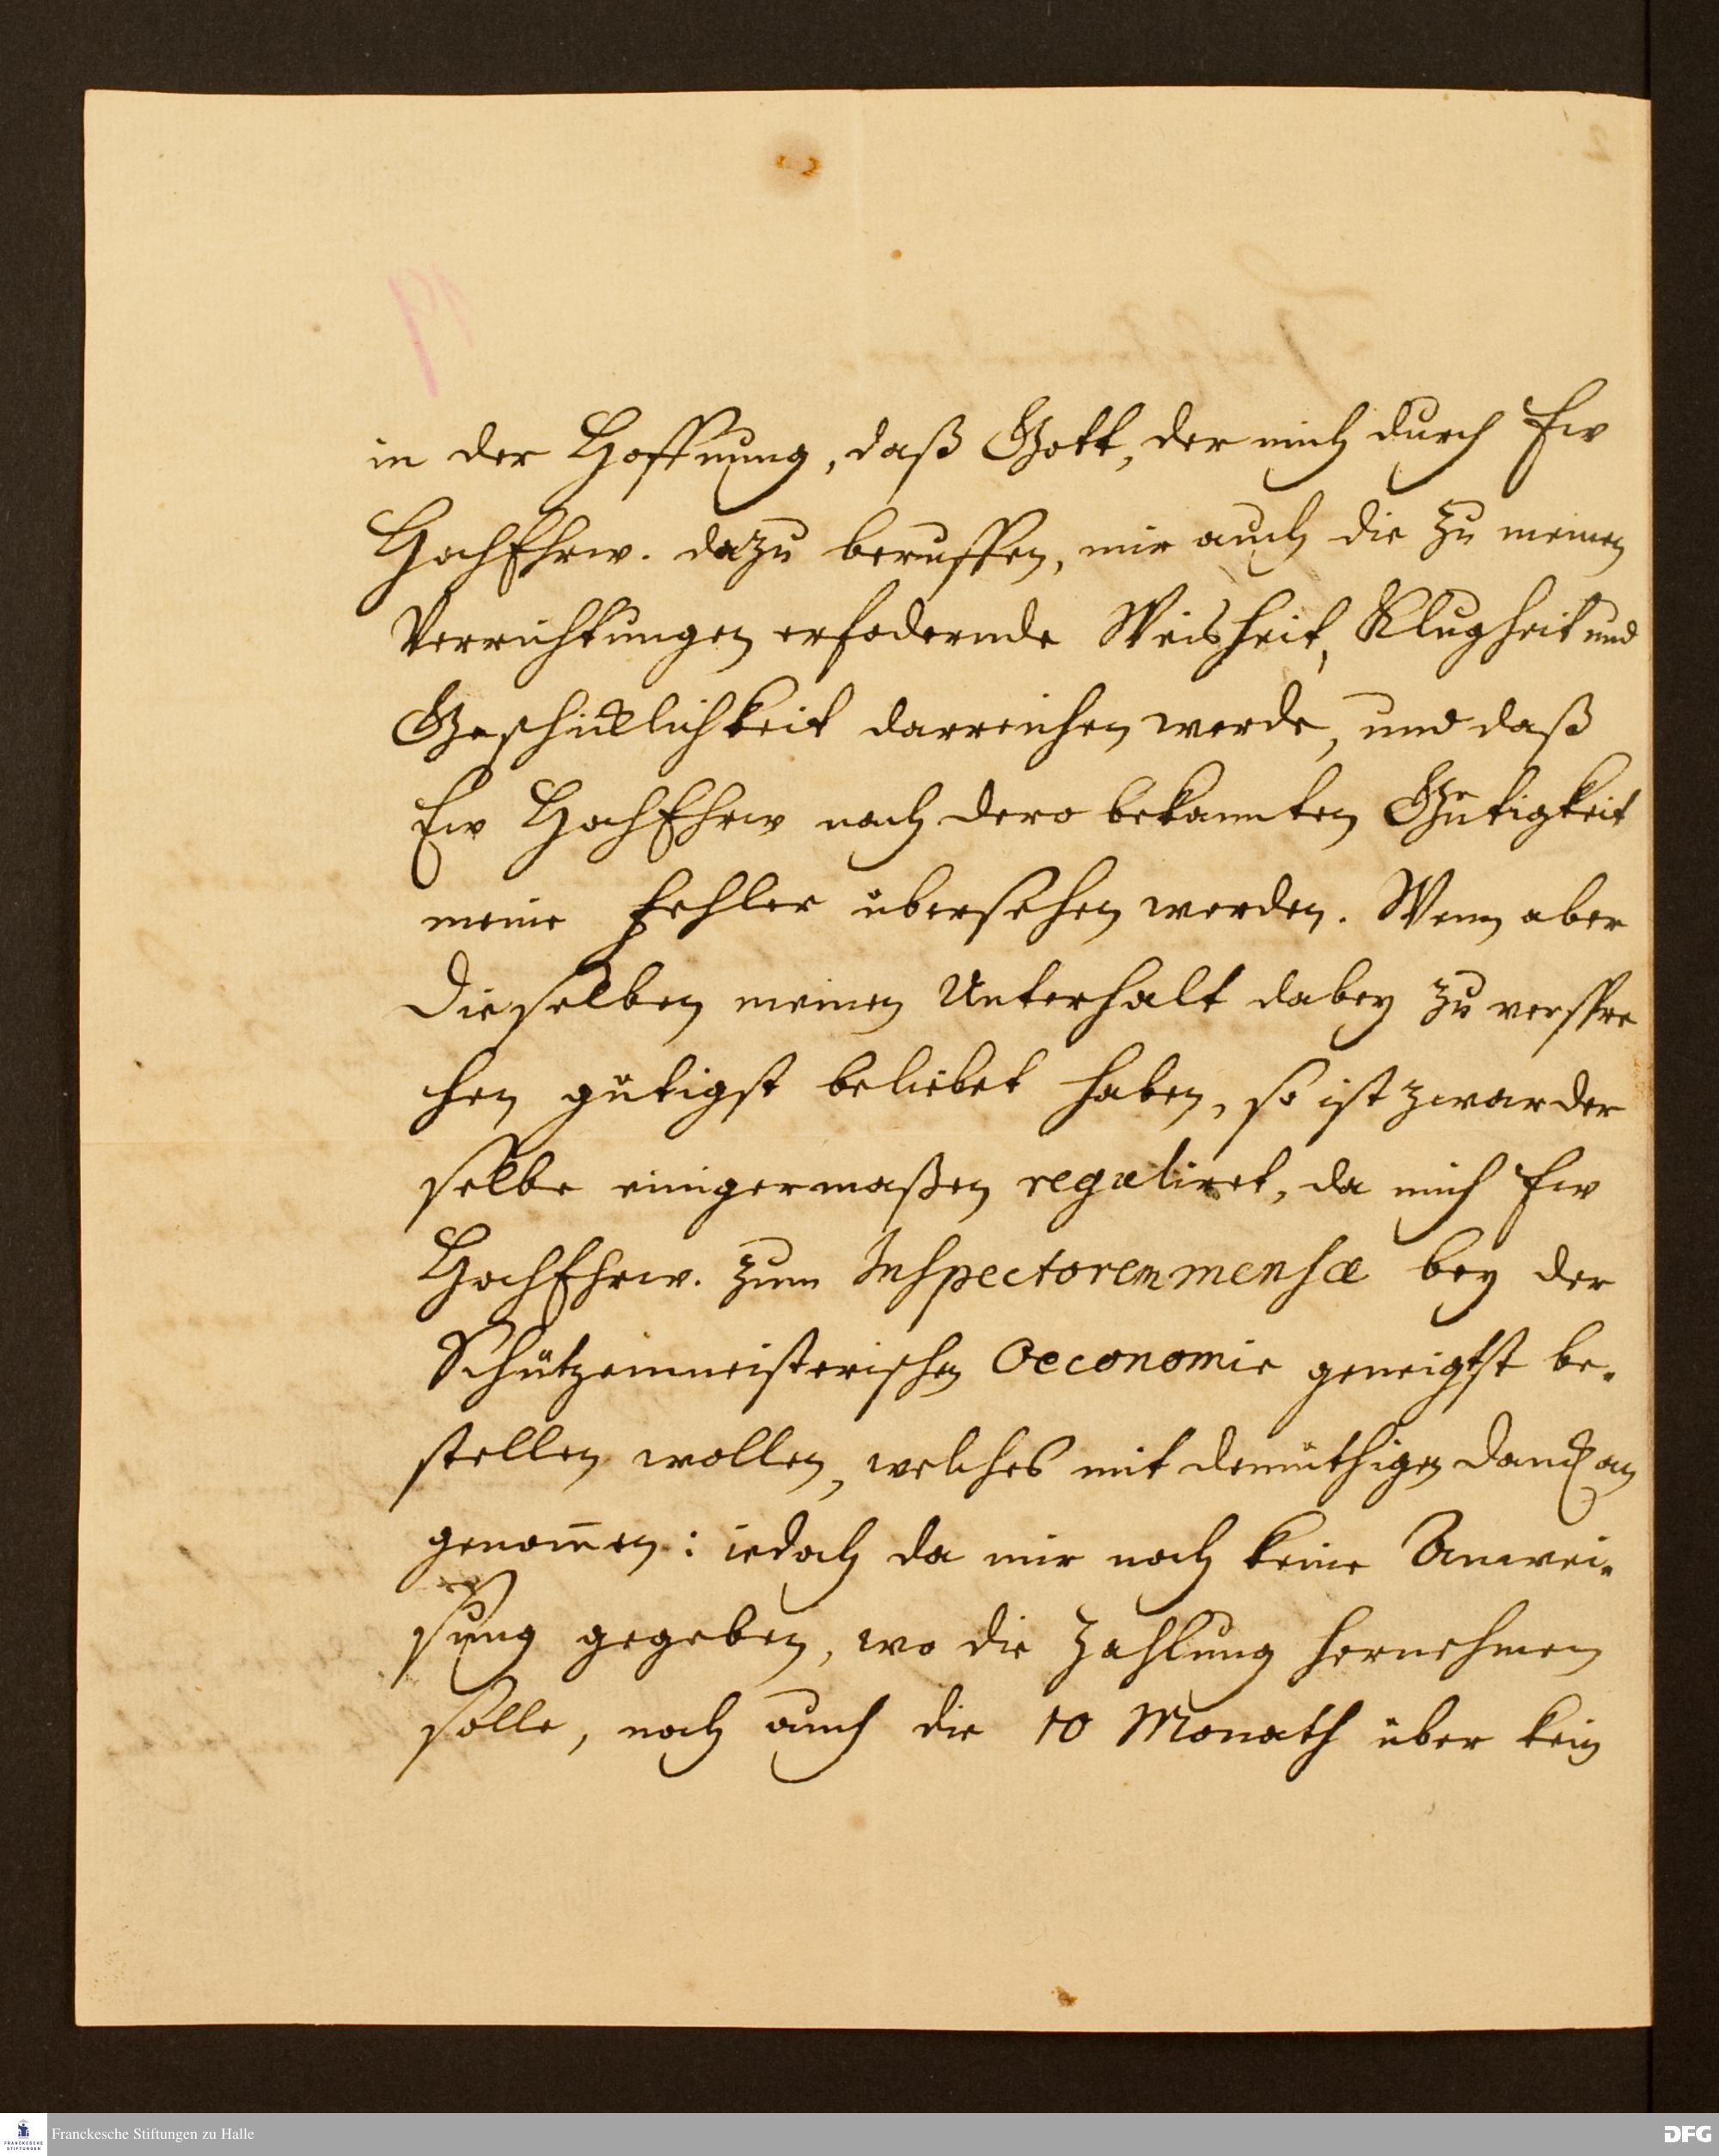 in der Hoffnung, daß Gott, der mich durch Ew
HochEhrw. dazu beruffen, mir auch die zu meinen
Verrichtungen erfodernde Weisheit, Klugheit und
Geschicklichkeit darreichen werde, und daß
Ew HochEhrw nach dero bekannten Gütigkeit
meine Fehler übersehen werden. Wenn aber
Dieselben meinen Unterhalt dabey zu verspre
chen gütigst beliebet haben, so ist zwar der
selbe einigermaßen reguliret, da mich Ew
HochEhrw. zum Inspectorem mensæ bey der
Schützenmeisterischen Oeconomie geneigtst be-
stellen wollen, welches mit demüthigen Danck an
genom̄en: iedoch da mir noch keine Anwei-
sung gegeben, wo die Zahlung hernehmen
solle, noch auch die 10 Monath über kein
Franckesche Stiftungen zu Halle
FRANCKESCHE STIFTUNGEN
DFG